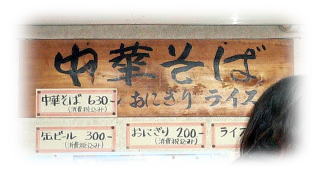 中華そば
おにぎり ライス
中華そば 630-
(消費税込み)
缶ビール 300-
(消費税込み)
おにぎり 200-
(消費税込み)
ライス